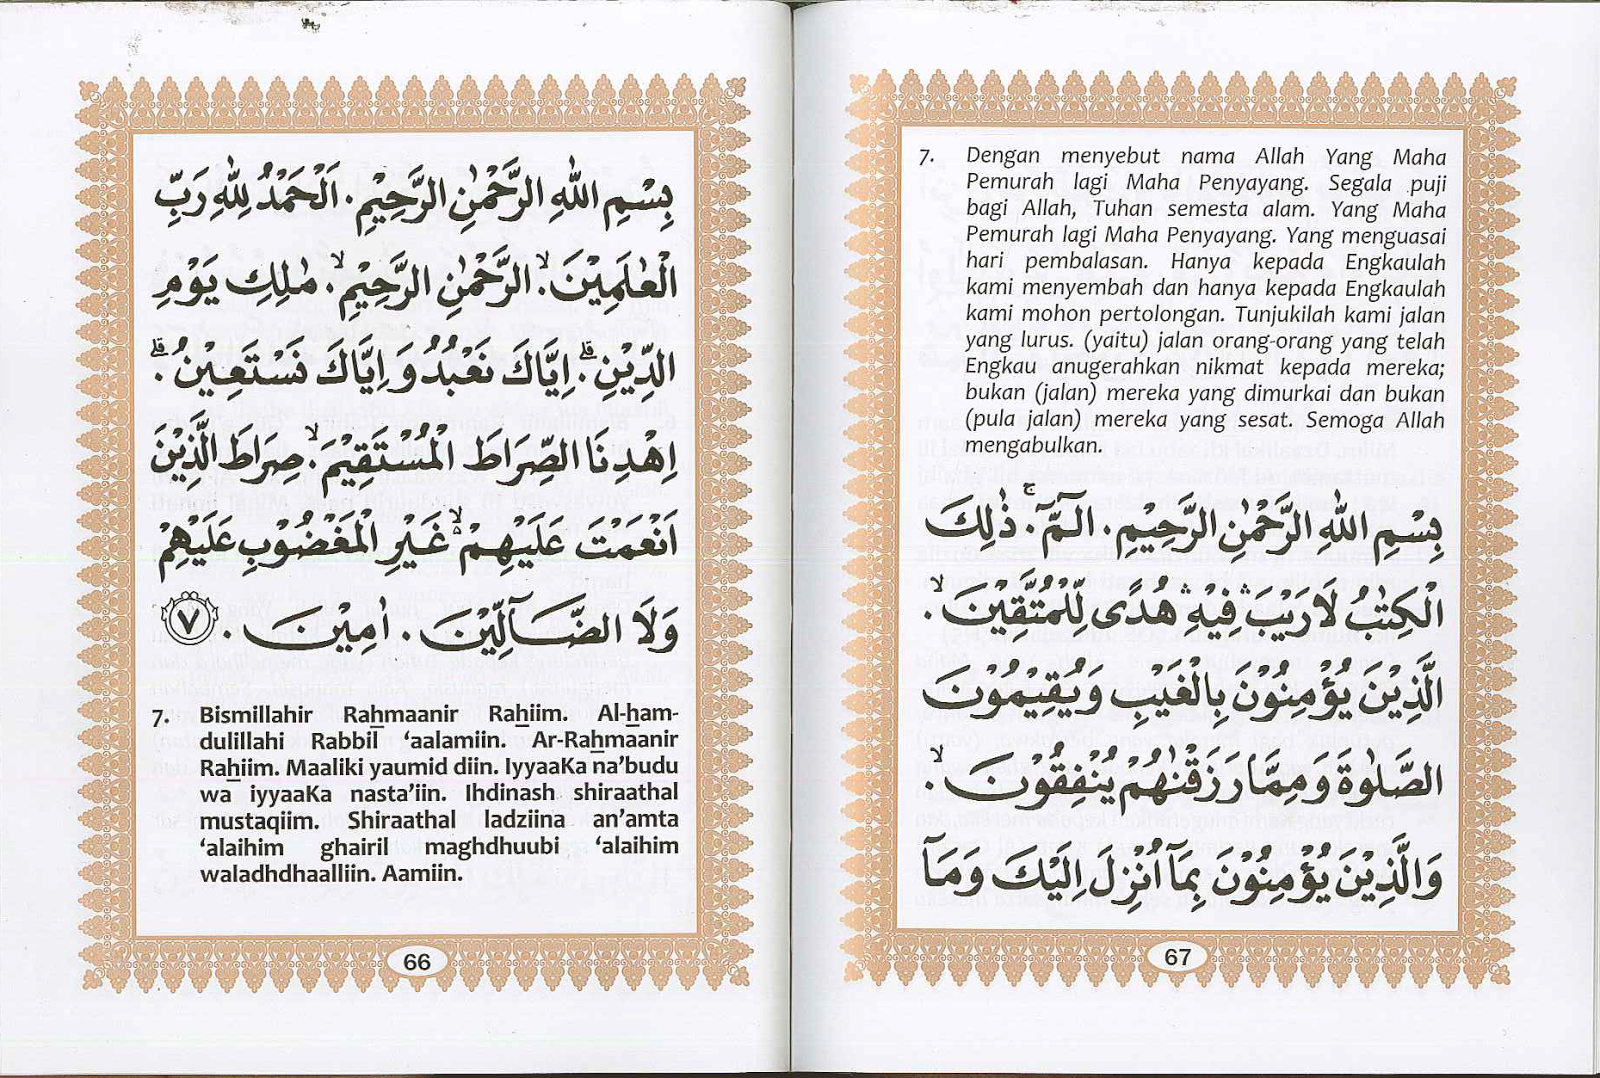 بِسْمِ اللّٰهِ الرَّحْمٰنِ الرَّحِيْمِ. اَلْحَمْدُ لِلّٰهِ رَبِّ
الْعٰلَمِيْنَۙ. الرَّحْمٰنِ الرَّحِيْمِۙ. مٰلِكِ يَوْمِ
الدِّيْنِۗ. اِيَّاكَ نَعْبُدُ وَ اِيَّاكَ نَسْتَعِيْنُۗ.
اِهْدِنَا الصِّرَاطَ الْمُسْتَقِيْمَۙ. صِرَاطَ الَّذِيْنَ
اَنْعَمْتَ عَلَيْهِمْۙ غَيْرِ الْمَغْضُوْبِ عَلَيْهِمْ
وَلَا الضَّآلِّيْنَ. اٰمِيْنَ. ٧
7. Bismillahir Rahmaanir Rahiim. Al-ham-
dulillahi Rabbil ‘aalamiin. Ar-Rahmaanir
Rahiim. Maaliki yaumid diin. IyyaaKa na’budu
wa iyyaaKa nasta’iin. Ihdinash shiraathal
mustaqiim. Shiraathal ladziina an’amta
‘alaihim ghairil maghdhuubi ‘alaihim
waladhdhaalliin. Aamiin.
66
7. Dengan menyebut nama Allah Yang Maha
Pemurah lagi Maha Penyayang. Segala puji
bagi Allah, Tuhan semesta alam. Yang Maha
Pemurah lagi Maha Penyayang. Yang menguasai
hari pembalasan. Hanya kepada Engkaulah
kami menyembah dan hanya kepada Engkaulah
kami mohon pertolongan. Tunjukilah kami jalan
yang lurus. (yaitu) jalan orang-orang yang telah
Engkau anugerahkan nikmat kepada mereka;
bukan (jalan) mereka yang dimurkai dan bukan
(pula jalan) mereka yang sesat. Semoga Allah
mengabulkan.
بِسْمِ اللّٰهِ الرَّحْمٰنِ الرَّحِيْمِ. الٓمّٓۚ. ذٰلِكَ
الْكِتٰبُ لَا رَيْبَۛ فِيْهِۛ هُدًى لِّلْمُتَّقِيْنَۙ.
الَّذِيْنَ يُؤْمِنُوْنَ بِالْغَيْبِ وَيُقِيْمُوْنَ
الصَّلٰوةَ وَمِمَّا رَزَقْنٰهُمْ يُنْفِقُوْنَۙ.
وَالَّذِيْنَ يُؤْمِنُوْنَ بِمَآ اُنْزِلَ اِلَيْكَ وَمَآ
67